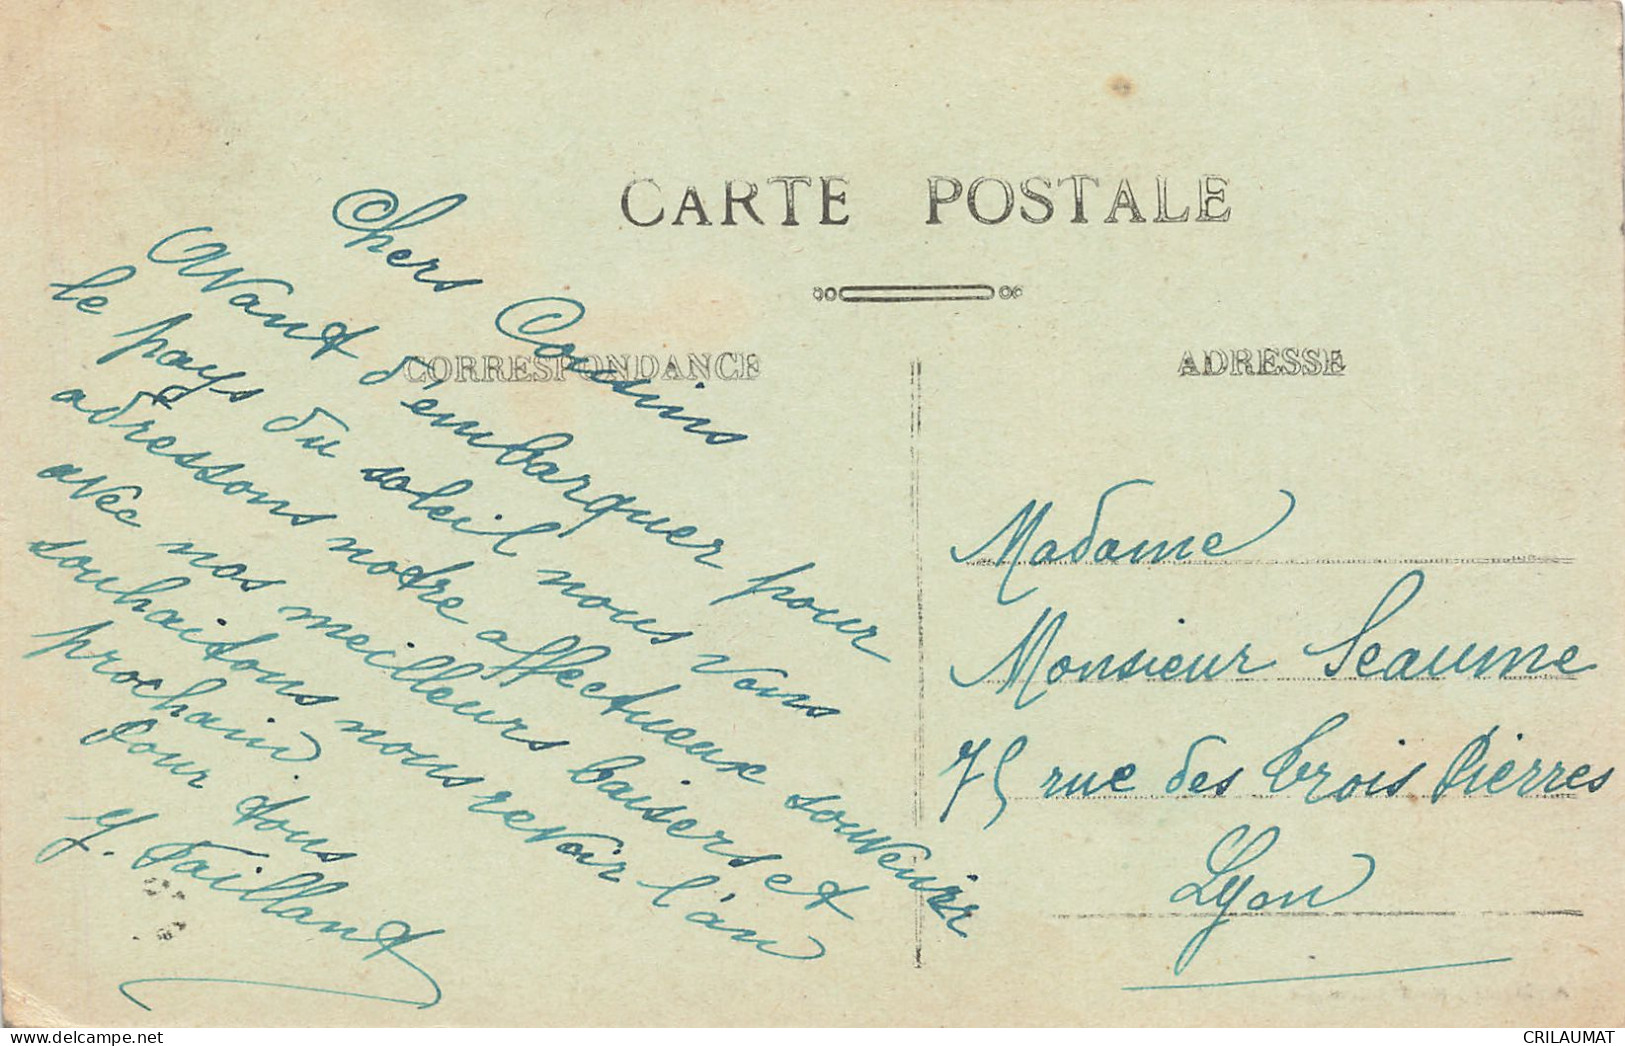 CARTE POSTALE
CORRESPONDANCE
ADRESSE
Chers Cousins
Avant d'embarquer pour
le pays du soleil nous vous
adressons notre affectueux souvenir
avec nos meilleurs baisers et
souhaitons nous revoir l'an
prochain.
Pour tous
Y. Faillant
Madame
Monsieur Seaume
75 rue des trois Pierres
Lyon
CRILAUMAT